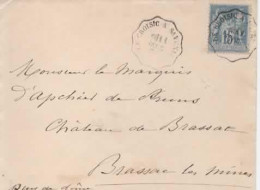 Monsieur le Marquis
d'Apchier de Pruns
Château de Brassac
Brassac les Mines
Puy de Dôme
15